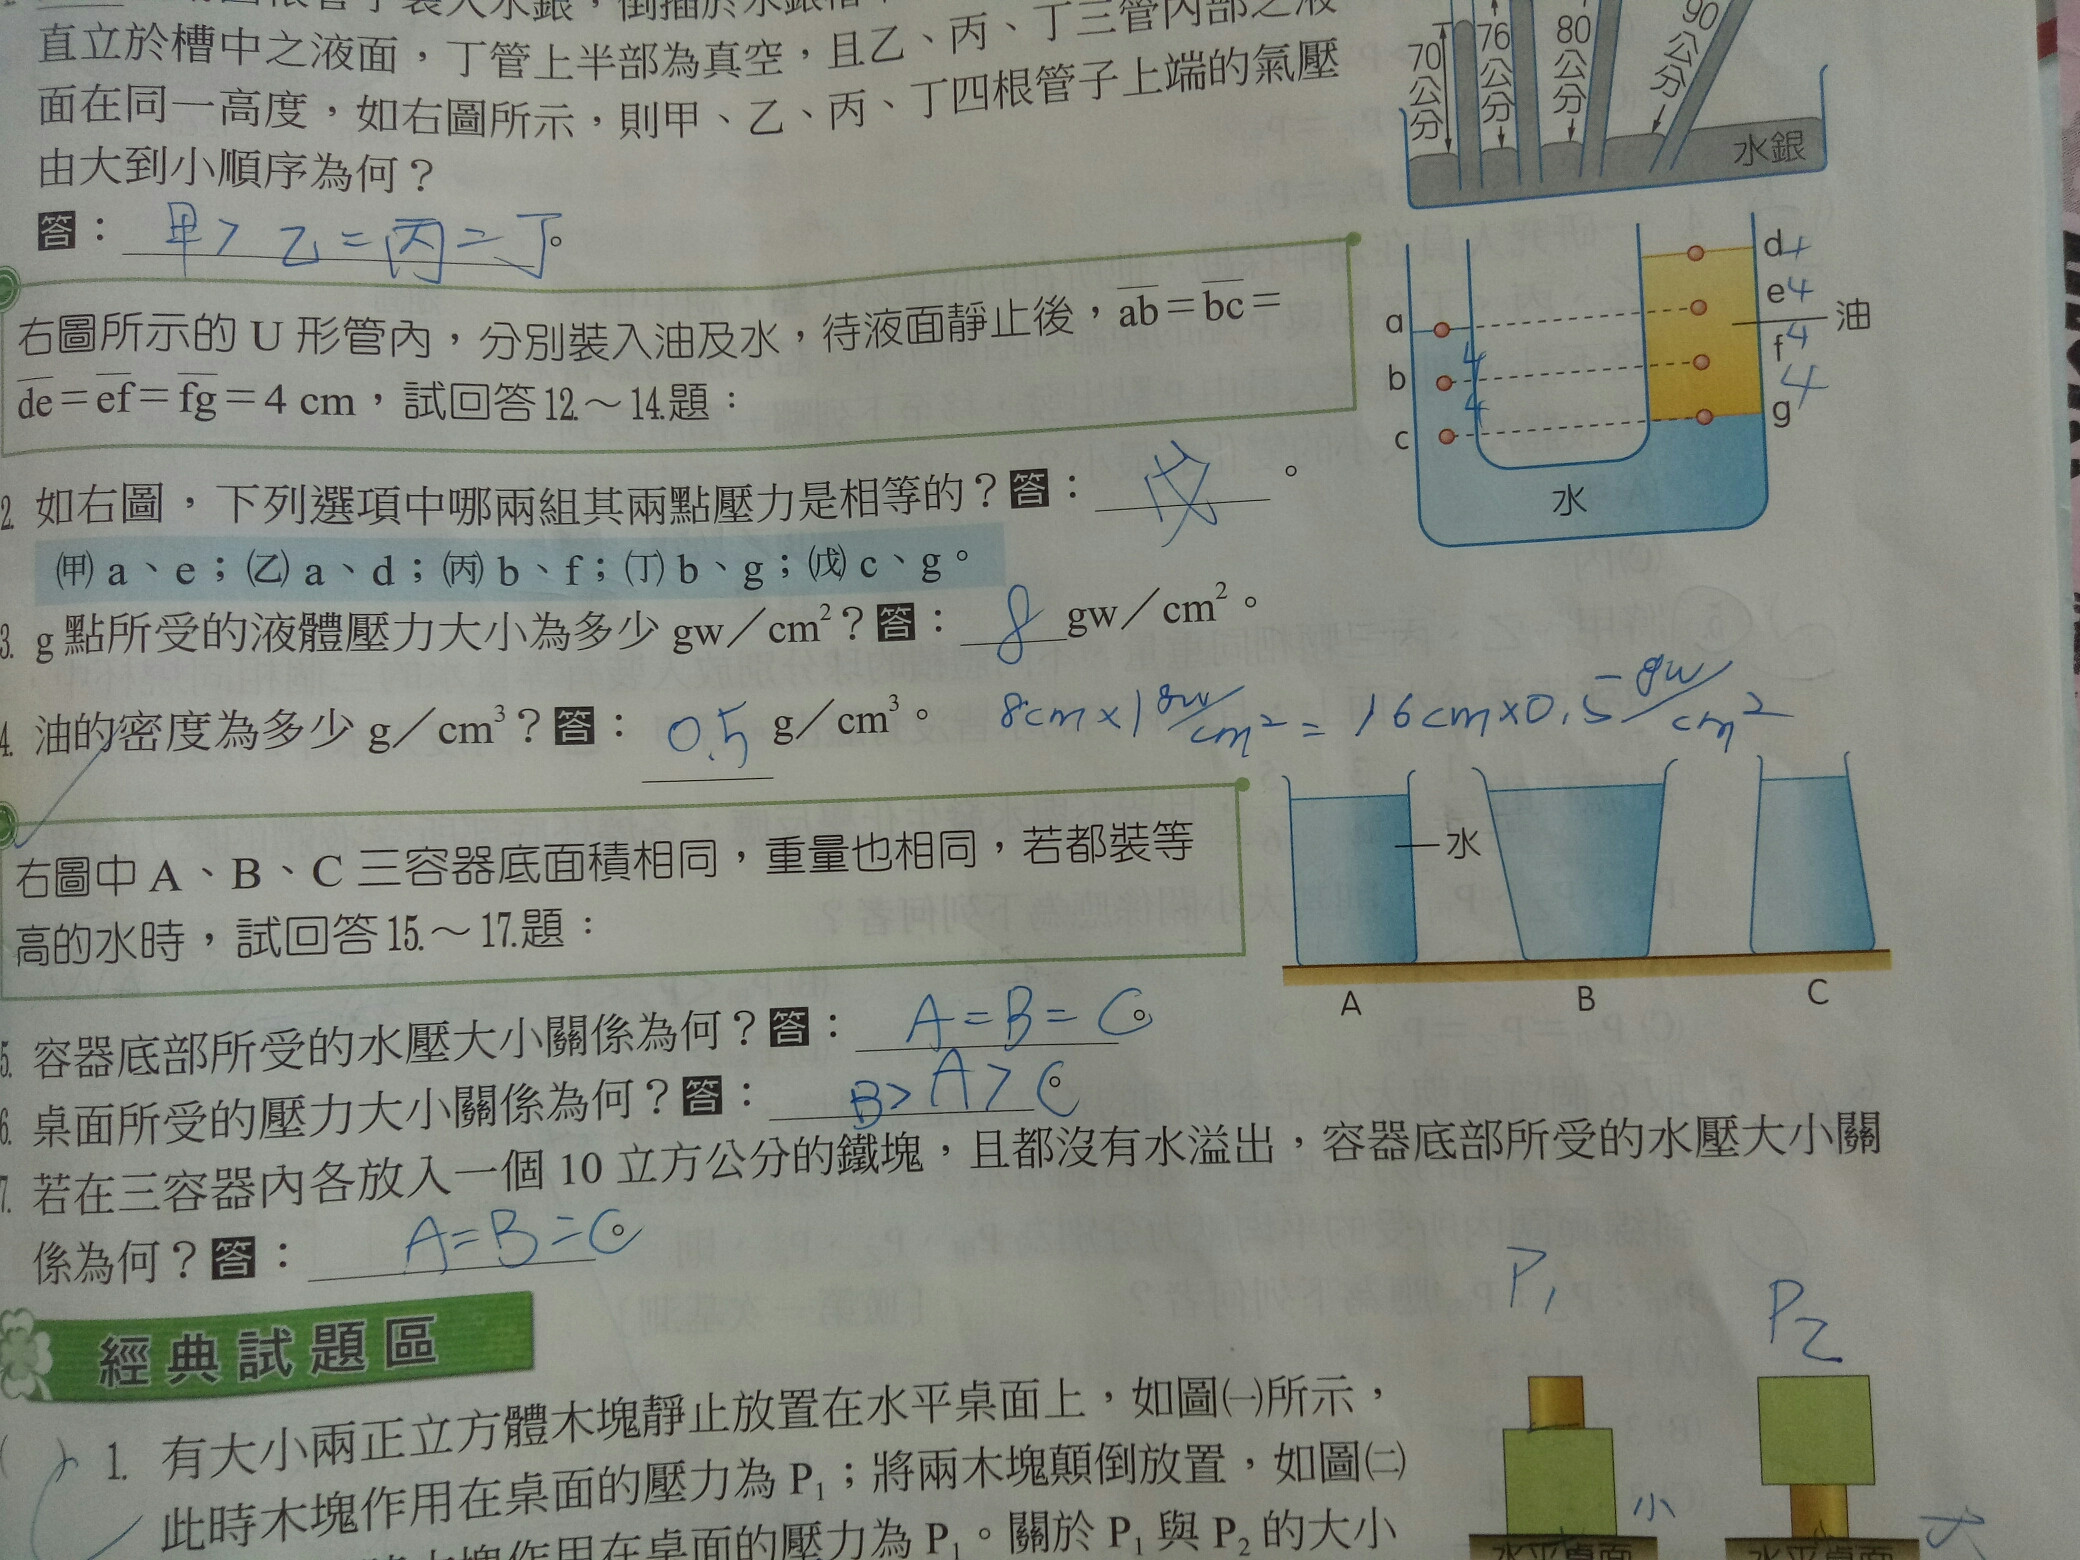 直立於槽中之液面，丁管上半部為真空，且乙、丙、丁三管內部之液
面在同一高度，如右圖所示，則甲、乙、丙、丁四根管子上端的氣壓
由大到小順序為何？
答：甲>乙=丙=丁。
70公分
76公分
80公分
90公分
水銀
右圖所示的 U 形管內，分別裝入油及水，待液面靜止後，ab＝bc＝
de＝ef＝fg＝4 cm，試回答12.～14.題：
a
b
c
4
4
d 4
e 4
f 4
g 4
油
水
2. 如右圖，下列選項中哪兩組其兩點壓力是相等的？答：戊。
(甲) a、e；(乙) a、d；(丙) b、f；(丁) b、g；(戊) c、g。
3. g 點所受的液體壓力大小為多少 gw／cm²？答：8 gw／cm²。
4. 油的密度為多少 g／cm³？答：0.5 g／cm³。 8cm×1gw/cm²=16cm×0.5gw/cm²
右圖中 A、B、C 三容器底面積相同，重量也相同，若都裝等
高的水時，試回答15.～17.題：
水
A
B
C
5. 容器底部所受的水壓大小關係為何？答：A=B=C。
6. 桌面所受的壓力大小關係為何？答：B>A>C。
7. 若在三容器內各放入一個 10 立方公分的鐵塊，且都沒有水溢出，容器底部所受的水壓大小關
係為何？答：A=B=C。
經典試題區
1. 有大小兩正立方體木塊靜止放置在水平桌面上，如圖㈠所示，
此時木塊作用在桌面的壓力為 P₁；將兩木塊顛倒放置，如圖㈡
木塊作用在桌面的壓力為 P₁。關於 P₁ 與 P₂ 的大小
P₁
P₂
小
大
水平桌面
水平桌面